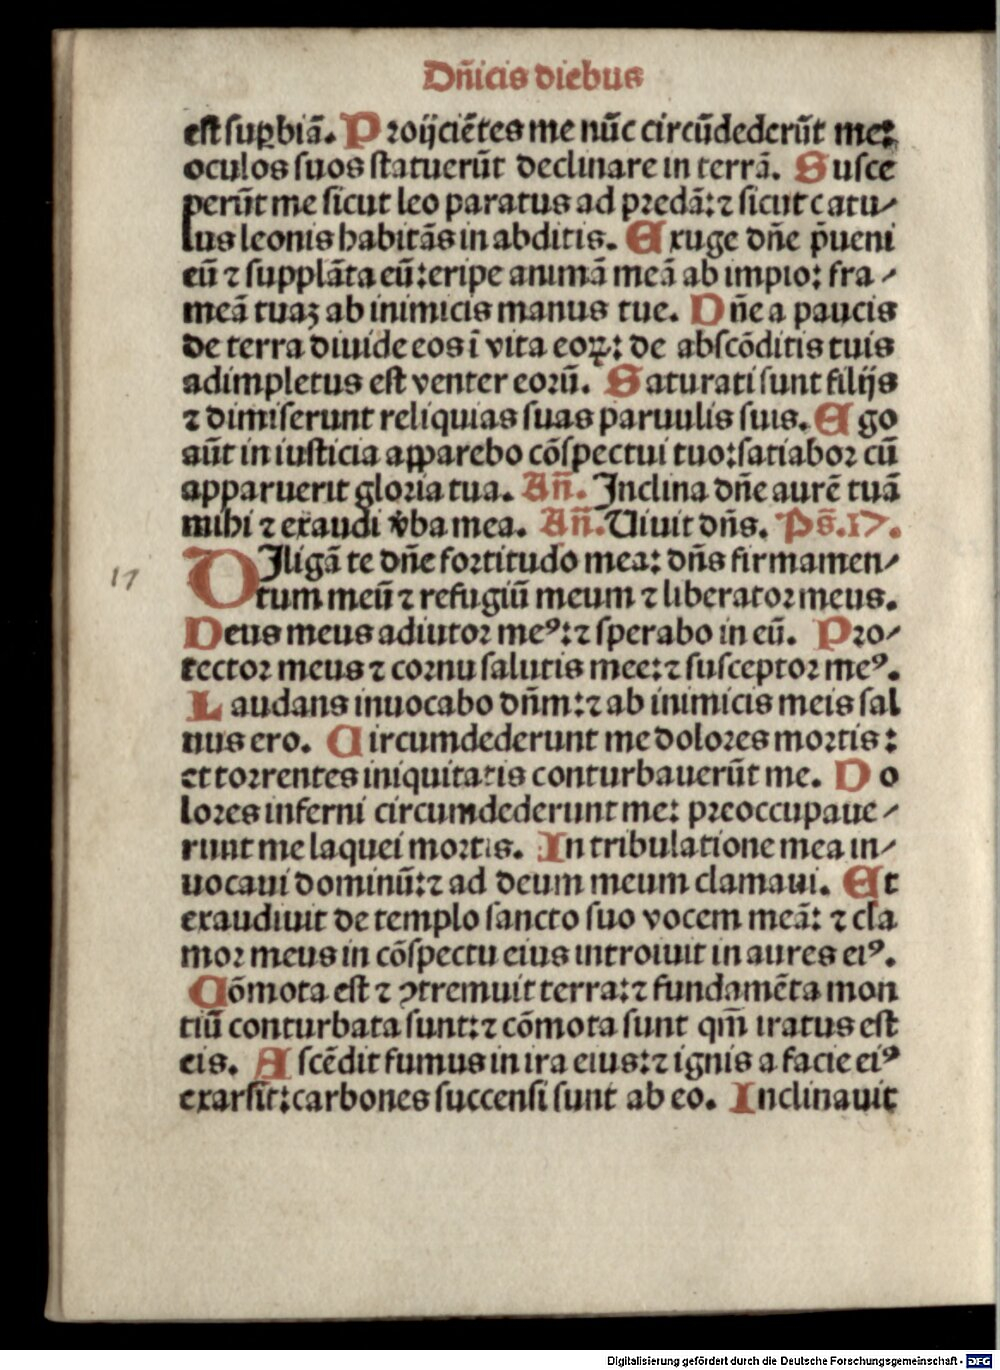 Dñicis diebus
est suꝑbiã. Proijciẽtes me nũc circũdederũt me:
oculos suos statuerũt declinare in terrã. Susce
perũt me sicut leo paratus ad predã: ⁊ sicut catu⸗
lus leonis habitãs in abditis. Exuge dñe p̃ueni
eũ ⁊ supplãta eũ: eripe animã meã ab impio: fra⸗
meã tuaꝫ ab inimicis manus tue. Dñe a paucis
de terra diuide eos ĩ vita eoꝝ: de abscõditis tuis
adimpletus est venter eorũ. Saturati sunt filijs
⁊ dimiserunt reliquias suas paruulis suis. Ego
aũt in iusticia apparebo cõspectui tuo: satiabor cũ
apparuerit gloria tua. Añ. Inclina dñe aurẽ tuã
mihi ⁊ exaudi v̾ba mea. Añ. Uiuit dñs. Ps̃. 17.
17
DIligã te dñe fortitudo mea: dñs firmamen⸗
tum meũ ⁊ refugiũ meum ⁊ liberator meus.
Deus meus adiutor meꝰ: ⁊ sperabo in eũ. Pro⸗
tector meus ⁊ cornu salutis mee: ⁊ susceptor meꝰ.
Laudans inuocabo dñm: ⁊ ab inimicis meis sal
uus ero. Circumdederunt me dolores mortis:
et torrentes iniquitatis conturbauerũt me. Do
lores inferni circumdederunt me: preoccupaue⸗
runt me laquei mortis. In tribulatione mea in⸗
uocaui dominũ: ⁊ ad deum meum clamaui. Et
exaudiuit de templo sancto suo vocem meã: ⁊ cla
mor meus in cõspectu eius introiuit in aures eiꝰ.
Cõmota est ⁊ ꝯtremuit terra: ⁊ fundamẽta mon
tiũ conturbata sunt: ⁊ cõmota sunt qm̃ iratus est
eis. Ascẽdit fumus in ira eius: ⁊ ignis a facie eiꝰ
exarsit: carbones succensi sunt ab eo. Inclinauit
Digitalisierung gefördert durch die Deutsche Forschungsgemeinschaft - DFG